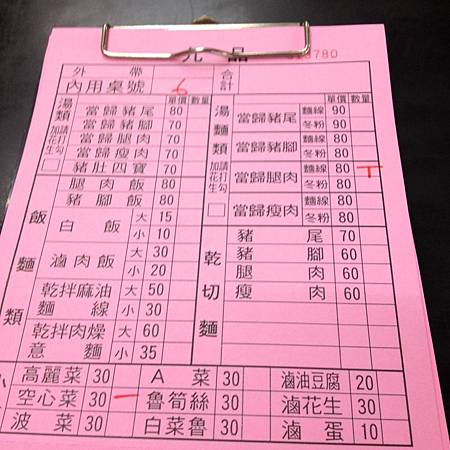 元品
3780
外帶
內用桌號 6
合計
湯類 加花生請打勾 □ 單價 數量
當歸豬尾 80
當歸豬腳 70
當歸腿肉 70
當歸瘦肉 70
豬肚四寶 70
飯麵類
腿肉飯 80
豬腳飯 80
白飯 大 15
小 10
滷肉飯 大 30
小 20
乾拌麻油麵線 大 50
小 30
乾拌肉燥意麵 大 60
小 35
湯麵類 加花生請打勾 □ 單價 數量
當歸豬尾 麵線 90
冬粉 90
當歸豬腳 麵線 80
冬粉 80
當歸腿肉 麵線 80 一
冬粉 80
當歸瘦肉 麵線 80
冬粉 80
乾切麵
豬尾 70
豬腳 60
腿肉 60
瘦肉 60
小
高麗菜 30 A菜 30 滷油豆腐 20
空心菜 30 一 魯筍絲 30 滷花生 30
菠菜 30 白菜魯 30 滷蛋 10